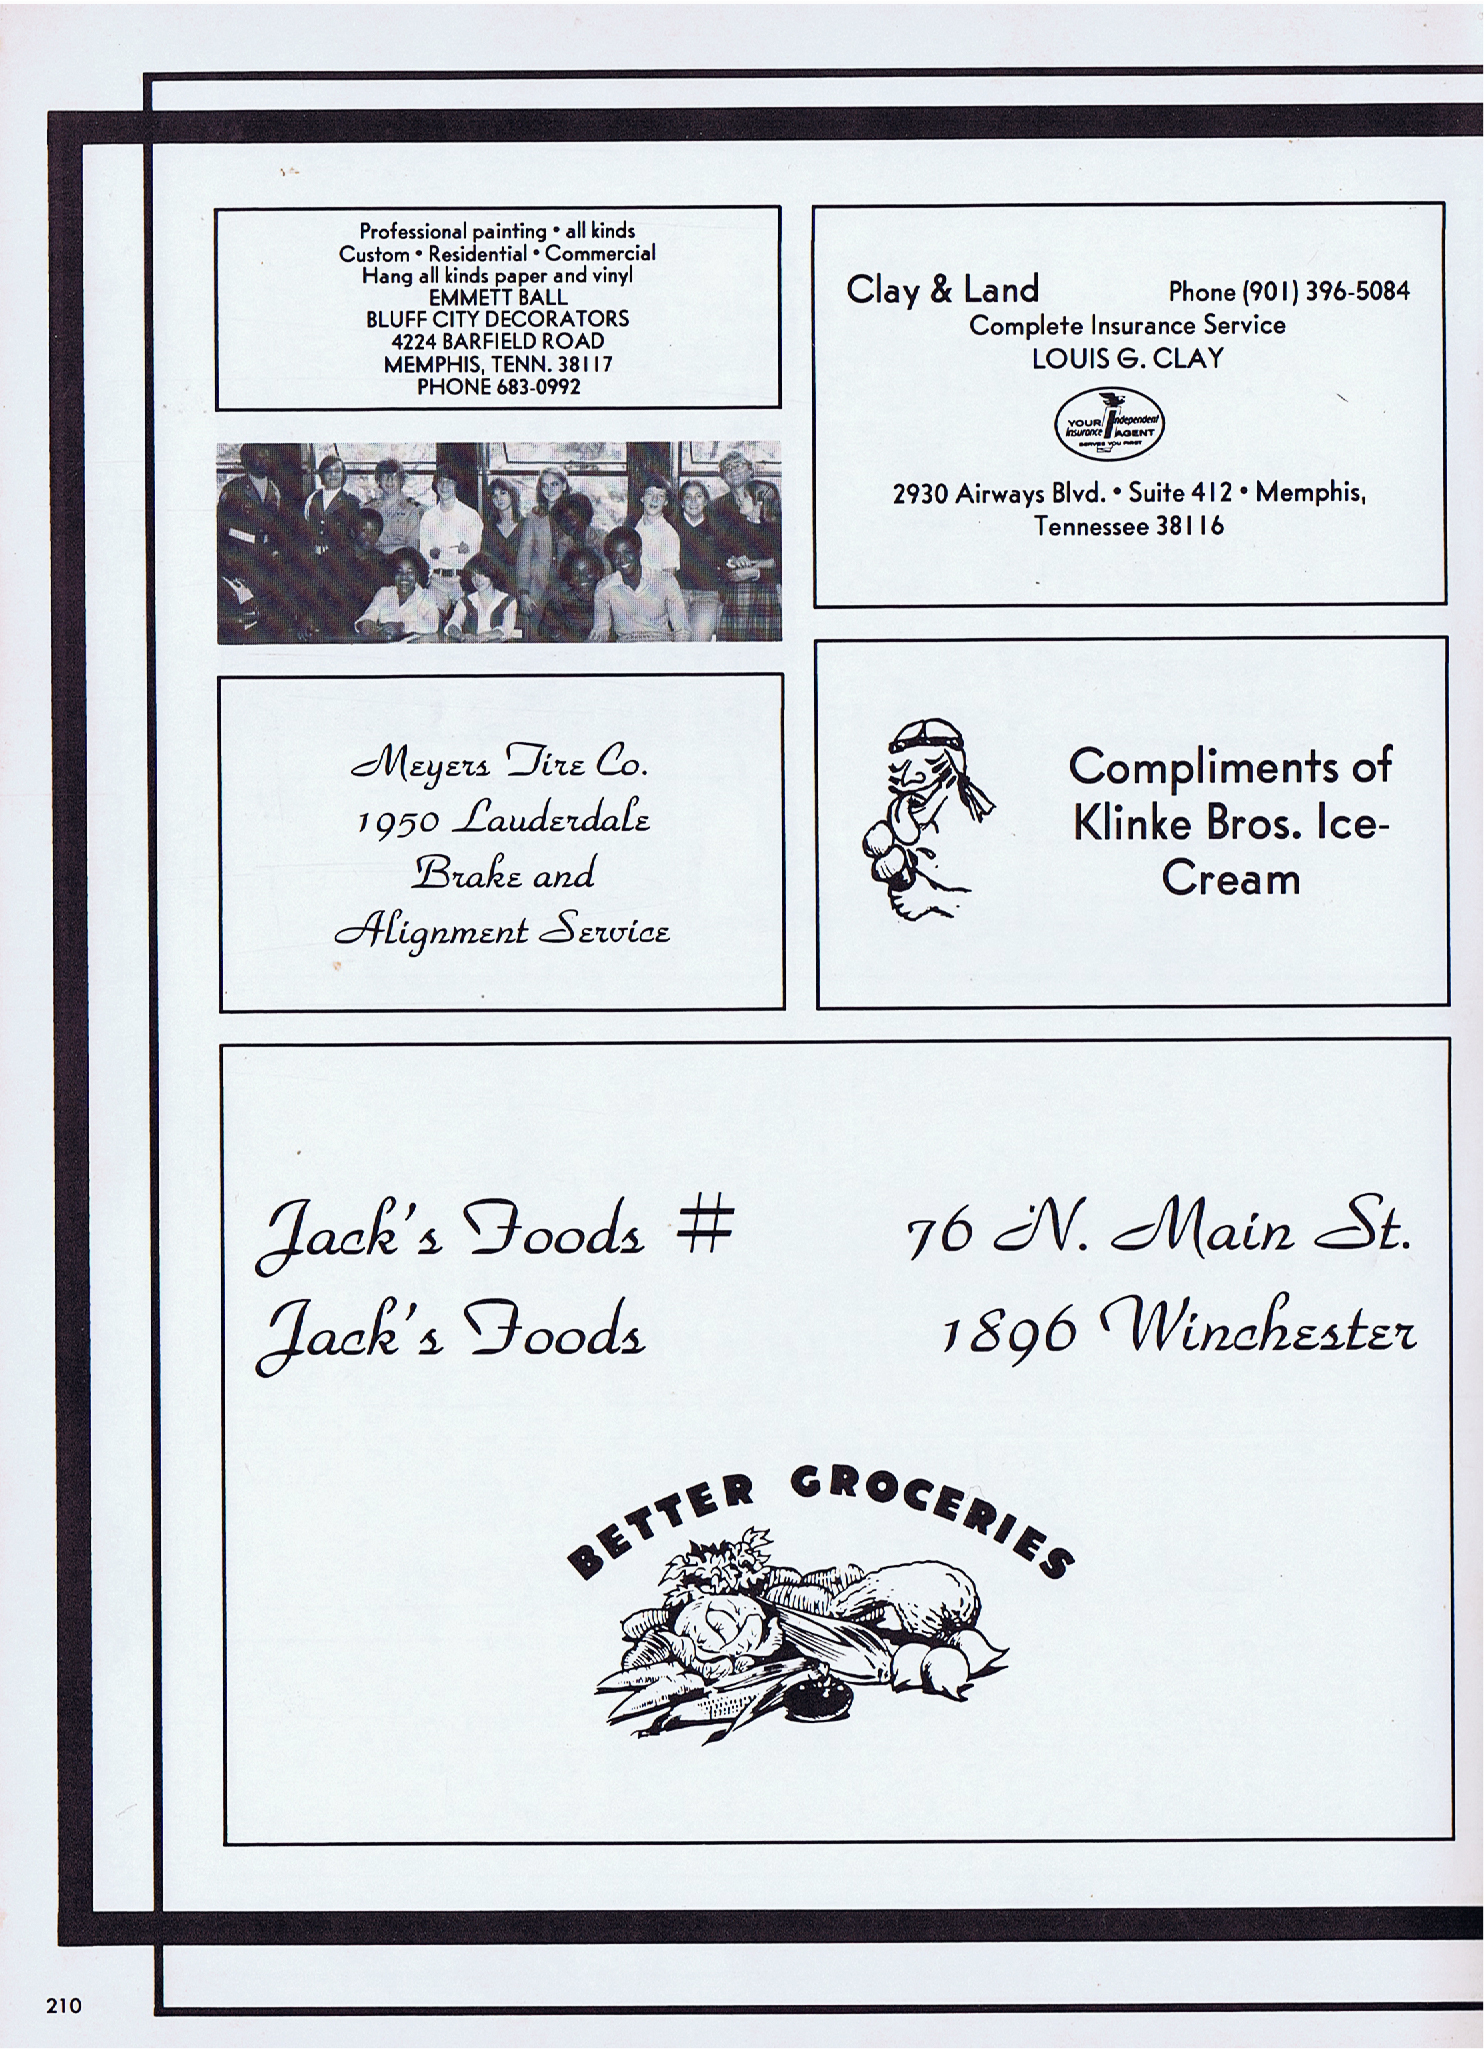 Professional painting • all kinds
Custom • Residential • Commercial
Hang all kinds paper and vinyl
EMMETT BALL
BLUFF CITY DECORATORS
4224 BARFIELD ROAD
MEMPHIS, TENN. 38117
PHONE 683-0992
Clay & Land Phone (901) 396-5084
Complete Insurance Service
LOUIS G. CLAY
YOUR Independent
Insurance AGENT
SERVES YOU FIRST
2930 Airways Blvd. • Suite 412 • Memphis,
Tennessee 38116
Meyers Tire Co.
1950 Lauderdale
Brake and
Alignment Service
Compliments of
Klinke Bros. Ice-
Cream
Jack's Foods # 76 N. Main St.
Jack's Foods 1896 Winchester
BETTER GROCERIES
210